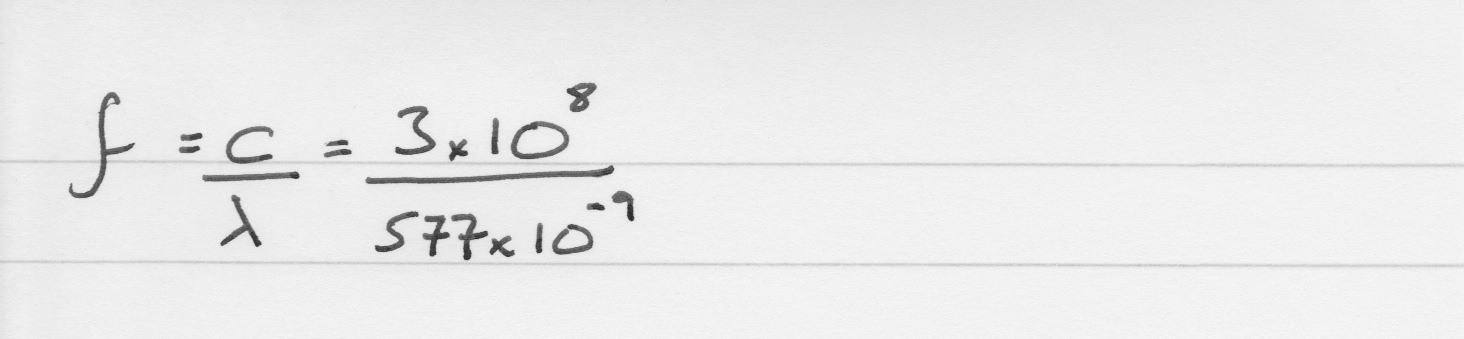 f = c/λ = 3×10⁸/577×10⁻⁹